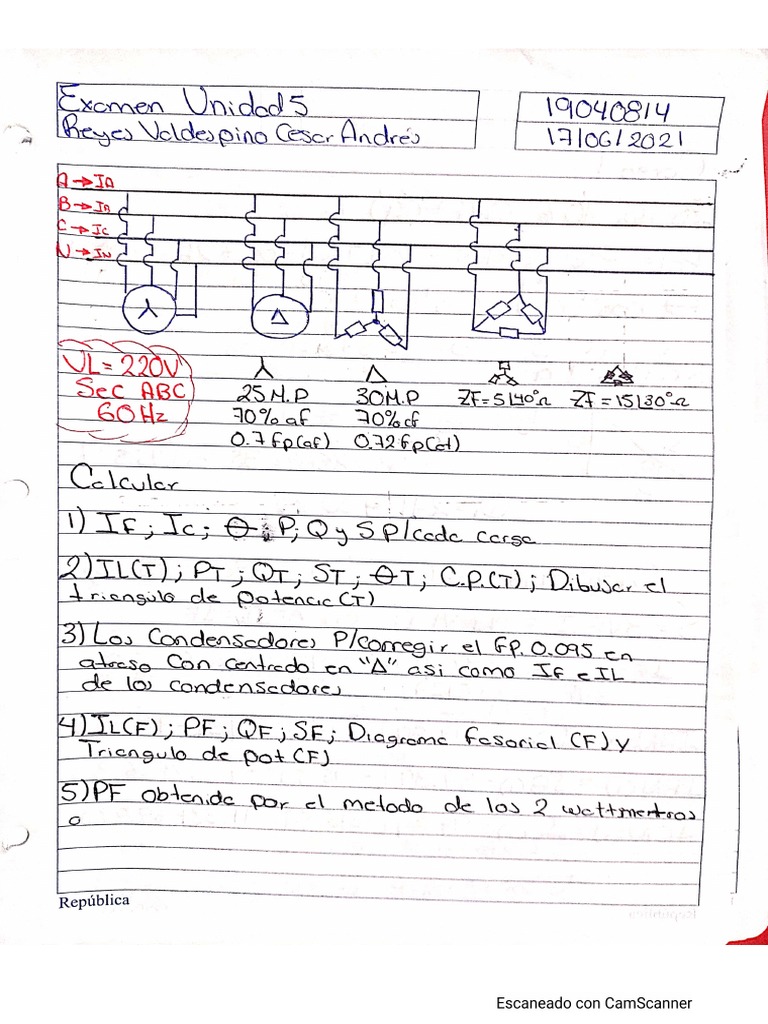 Examen Unidad 5
Reyes Valdespino Cesar Andrés
19040814
17/06/2021
A → IA
B → IB
C → Ic
N → IN
VL = 220V
Sec ABC
60 Hz
25 H.P
70% ef
0.7 fp(at)
30 H.P
70% ef
0.72 fp(at)
ZF = 5∠40° Ω
ZF = 15∠30° Ω
Calcular
1) IF ; Ic ; Θ ; P; Q y S P/cada carga
2) IL(T) ; PT ; QT ; ST ; ΘT ; C.P.(T) ; Dibujar el
triangulo de potencia (T)
3) Los Condensadores P/corregir el fp. 0.095 en
atraso Con centrado en "Δ" asi como IF e IL
de los condensadores
4) IL(F) ; PF ; QF ; SF ; Diagrama fasorial (F) y
Triangulo de pot (F)
5) PF obtenida por el metodo de los 2 wattmentros
o
República
Escaneado con CamScanner